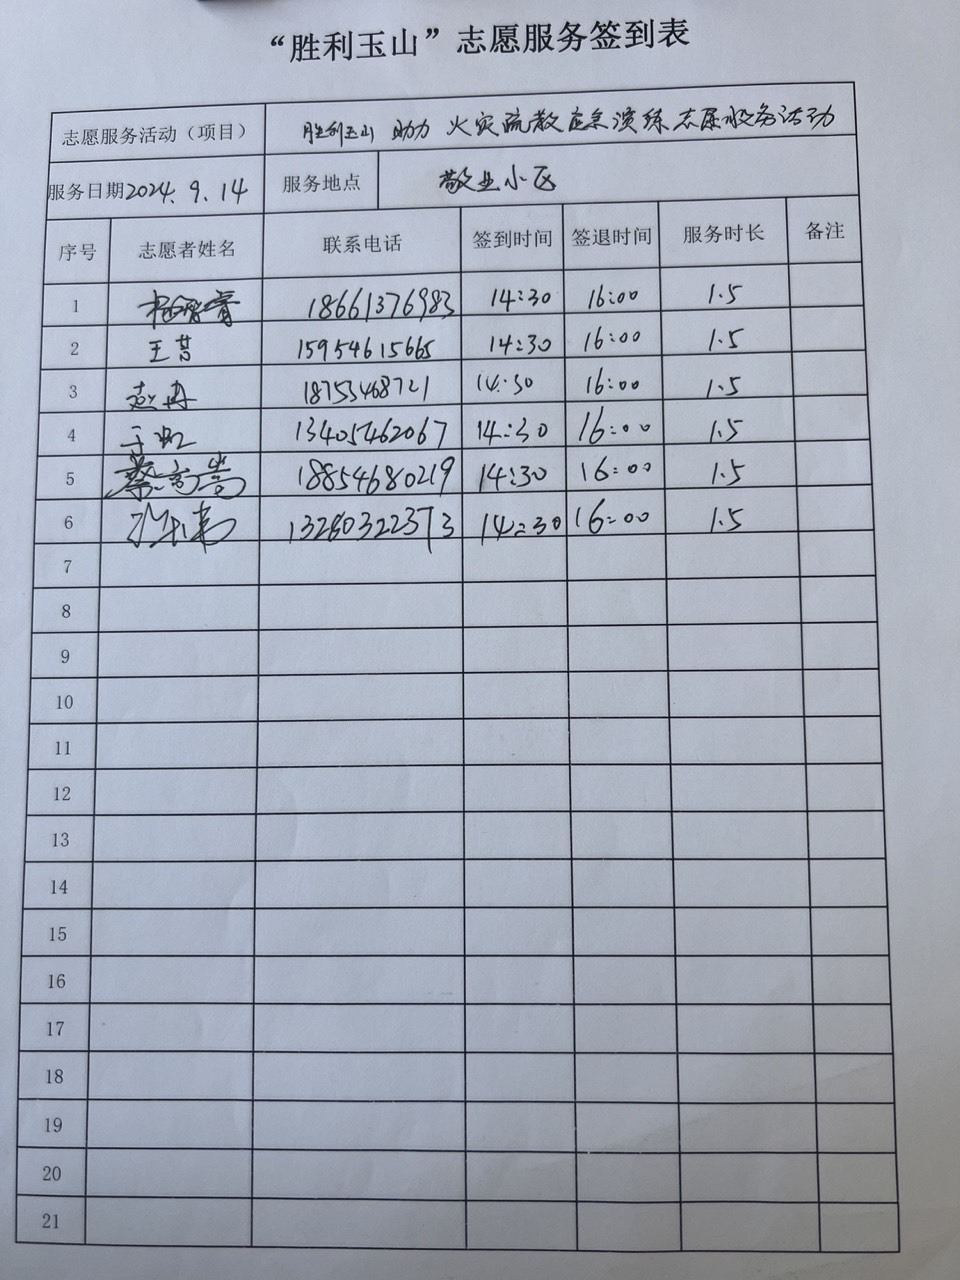 “胜利玉山”志愿服务签到表
志愿服务活动（项目） 胜利玉山 助力 火灾疏散应急演练志愿服务活动
服务日期 2024.9.14 服务地点 敬业小区
序号 志愿者姓名 联系电话 签到时间 签退时间 服务时长 备注
1 18661376983 14:30 16:00 1.5
2 王昔 15954615665 14:30 16:00 1.5
3 赵冉 18753468721 14:30 16:00 1.5
4 于虹 13405462067 14:30 16:00 1.5
5 18854680219 14:30 16:00 1.5
6 13280322373 14:30 16:00 1.5
7
8
9
10
11
12
13
14
15
16
17
18
19
20
21